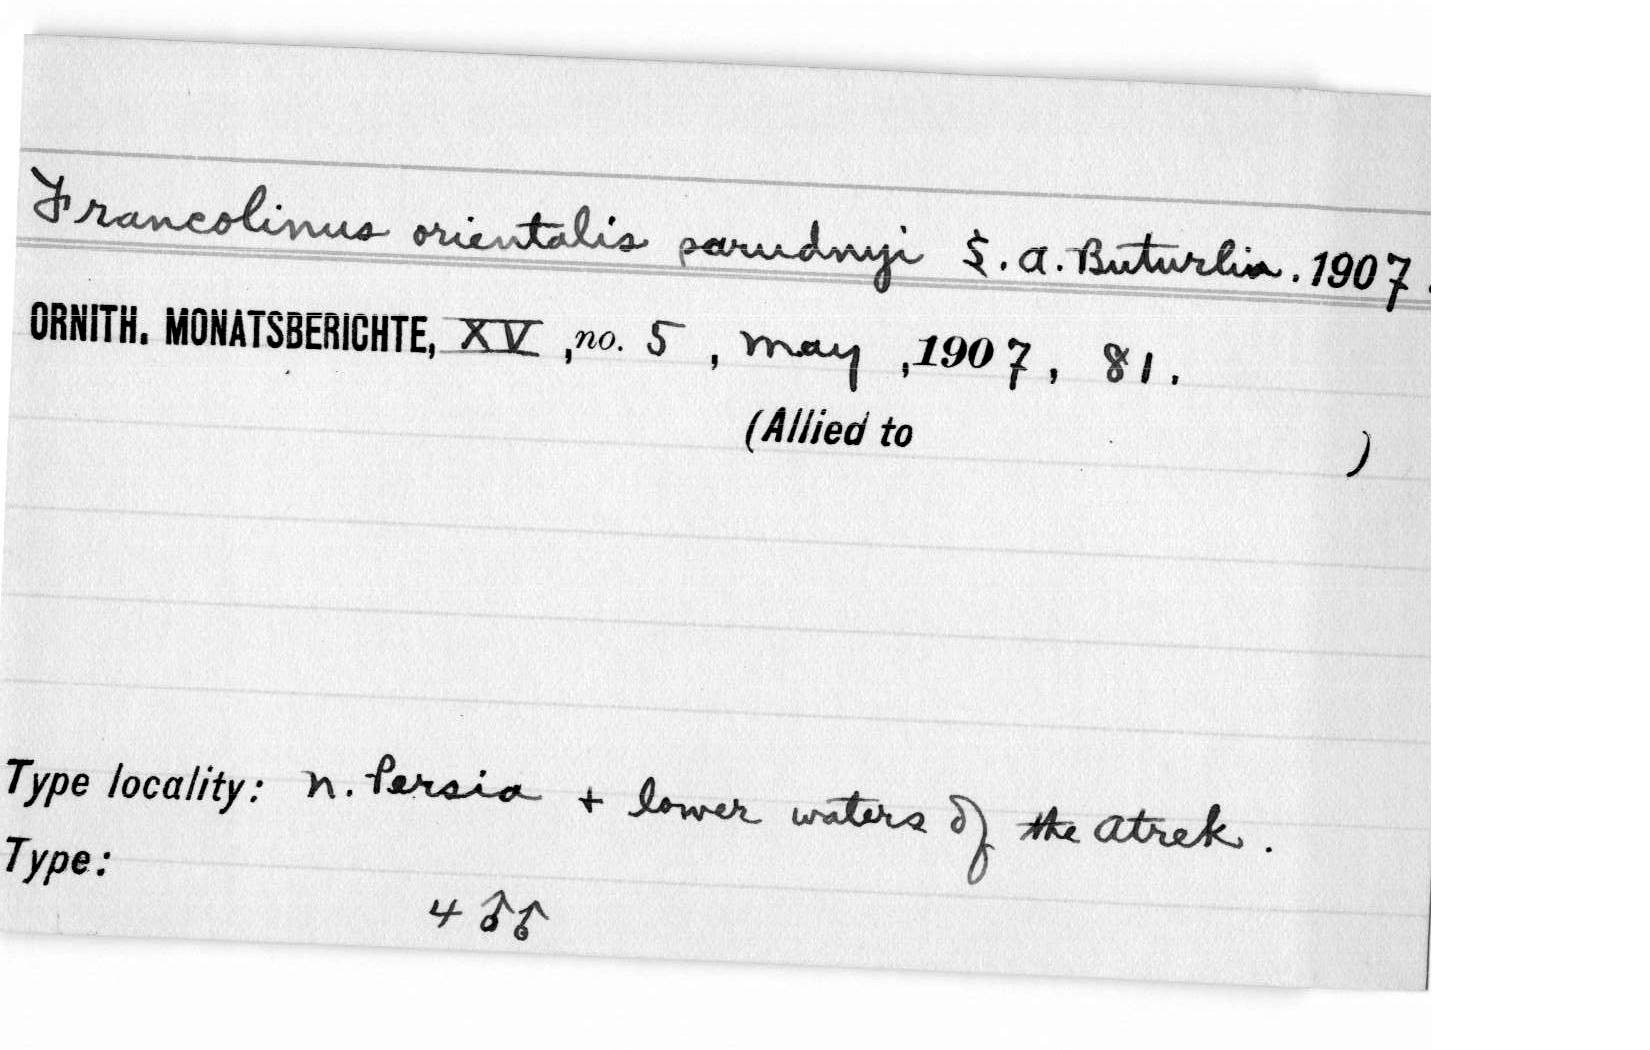 Francolinus orientalis sarudnyi S. A. Buturlin. 1907.
ORNITH. MONATSBERICHTE, XV, no. 5, May, 1907, 81.
(Allied to )
Type locality: N. Persia + lower waters of the Atrek.
Type:
4 ♂♂